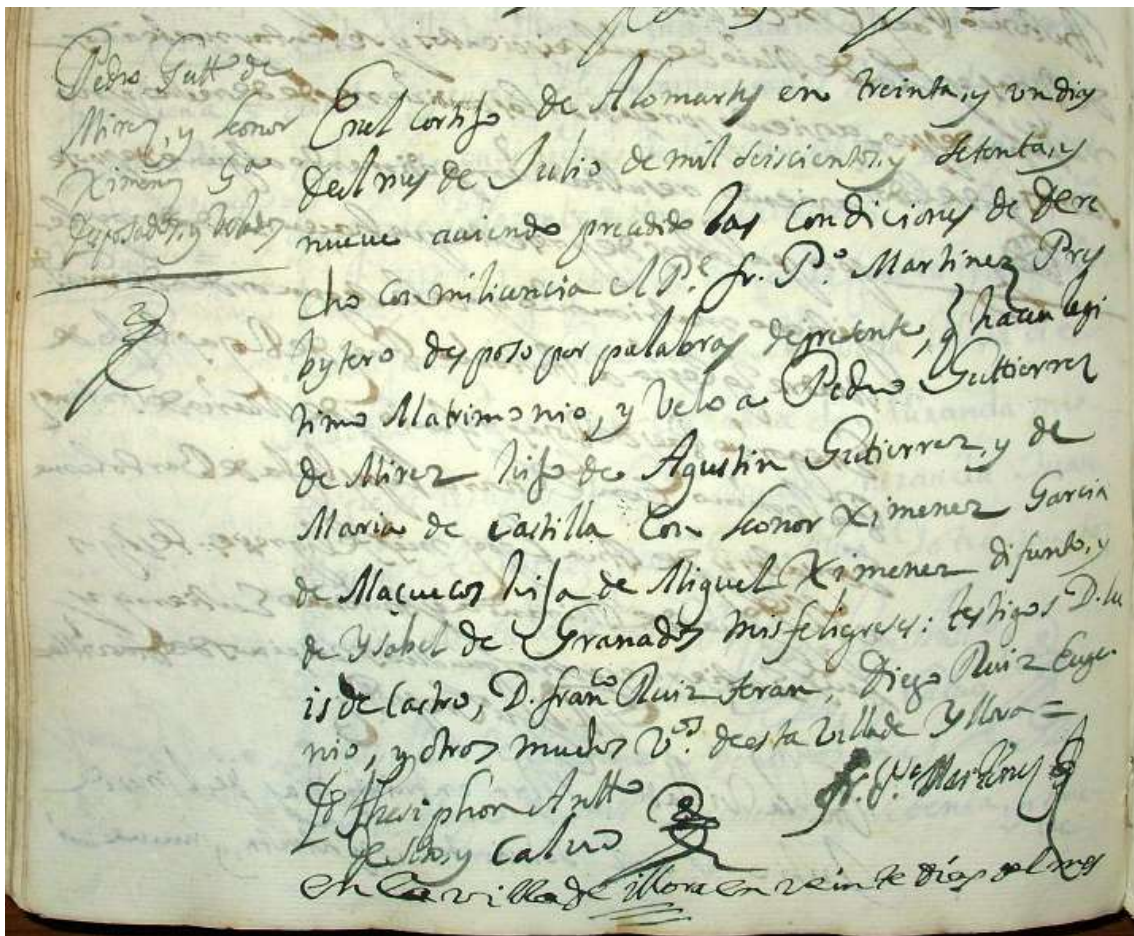 Pedro Gutt^o de
Mirez, y Leonor
Ximenez Ga
Desposados, y Velados
Enel Cortijo de Alomartes en treinta, y un dias
del mes de Julio de mil seiscientos, y setenta, y
nueve aviendo precedido las Condiciones de dere
cho con mi licencia el P.^e fr. P.^o Martinez Pres
bytero desposo por palabras de presente, q hacen legi
timo Matrimonio, y Velo a Pedro Guttierrez
de Mirez hijo de Agustin Gutierrez, y de
Maria de Castilla Con Leonor Ximenez Garcia
de Maçuecos hija de Miguel Ximenez difunto, y
de Ysabel de Granados mis feligreses: testigos D. Lu
is de Castro, D. Fran^co Ruiz Teran, Diego Ruiz Euge
nio, y otros muchos V.^os de esta Villa de Yllora =
Antt^o
Calvo
fr. P.^o Martinez
en la villa de illora en veinte dias del mes